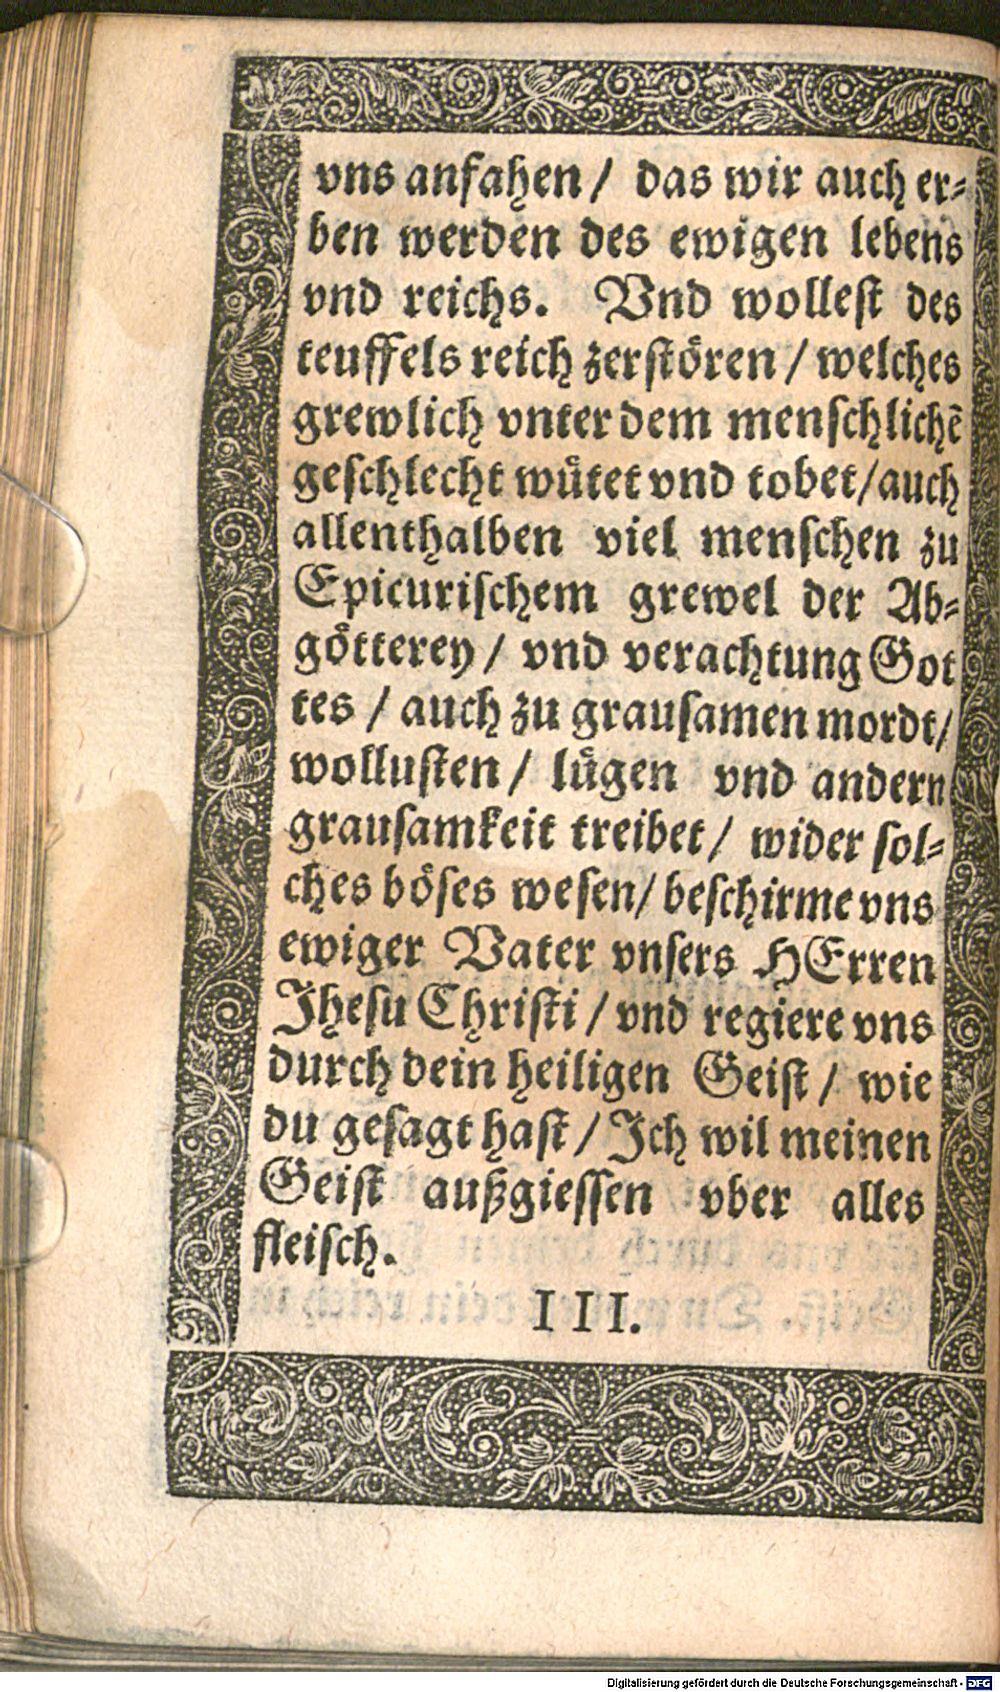 vns anfahen / das wir auch er⸗
ben werden des ewigen lebens
vnd reichs. Vnd wolleſt des
teuffels reich zerſtoͤren / welches
grewlich vnter dem menſchlichẽ
geſchlecht wuͤtet vnd tobet/auch
allenthalben viel menſchen zu
Epicuriſchem grewel der Ab⸗
goͤtterey / vnd verachtung Got
tes / auch zu grauſamen mordt/
wolluſten / luͤgen vnd andern
grauſamkeit treibet / wider ſol⸗
ches boͤſes weſen/ beſchirme vns
ewiger Vater vnſers HErren
Jheſu Chriſti / vnd regiere vns
durch dein heiligen Geiſt / wie
du geſagt haſt / Jch wil meinen
Geiſt außgieſſen vber alles
fleiſch.
III.
Digitalisierung gefördert durch die Deutsche Forschungsgemeinschaft - DFG